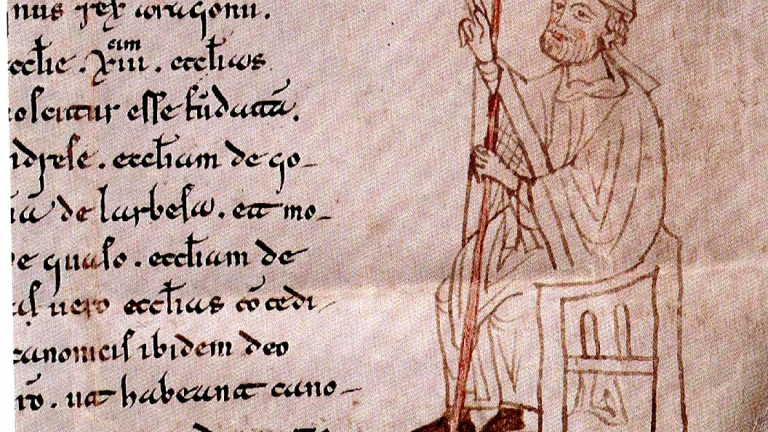 gnus rex aragonu.
ecclie. xiiii. ecclias
noscitur esse fu̅data̅.
idrese. eccliam de go-
de larbesa. et mo-
e quaso. eccliam de
vero ecclias co̅cedi-
canonicis ibidem deo
ut habeant cano-